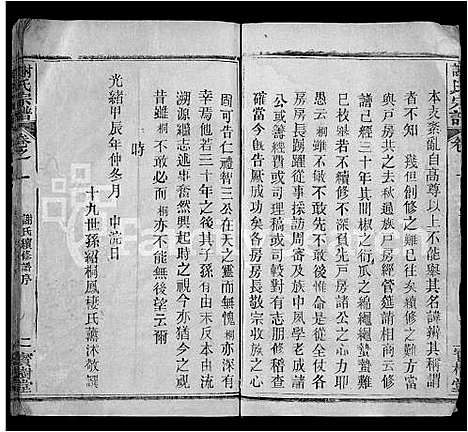 謝氏宗譜
本支紊亂自高尊以上不能舉其名諱辨其稱謂
者不知　幾人但創修之難已往矣續修之難
與戶房共之去秋過族中戶房經管延請相商曰
譜已經三十年其椒之衍瓜之綿繩繩蟄蟄難
已枚舉若不續修不深負先戶房諸公之心力耶
愚云桐不敏不敢不竭力以隨諸君子後因而戶
房房長踴躍從事訪周審及族中夙學老成請
公或善經費或司理稿或司較對有志朋修稽查
確當今冬各告厥成功矣房房長敬宗收族之心
固可告仁禮暨三公在天之靈而無愧桐亦深有
幸焉他若三十年之後其子孫有反本由流
溯源繼志述事奮然興起時之視今亦猶今之視
昔雖桐不敢必而桐亦不能無後望云爾
時
光緒甲辰年仲冬月　中浣日
十九世孫紹桐鳳棲氏薰沐敬譔
謝氏宗譜
卷之一
謝氏續修譜序
二
寶樹堂